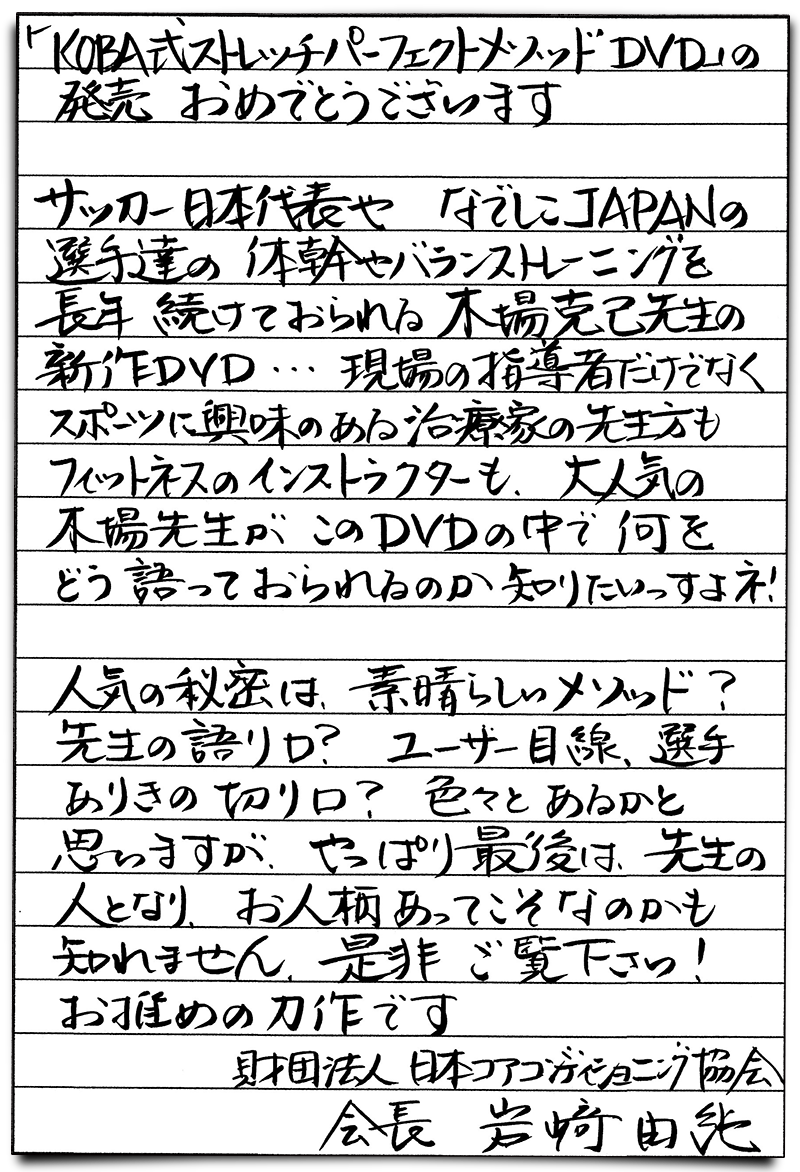 「KOBA式ストレッチパーフェクトメソッドDVD」の
発売 おめでとうございます
サッカー日本代表や なでしこJAPANの
選手達の 体幹やバランストレーニングを
長年 続けておられる 木場克己先生の
新作DVD… 現場の指導者だけでなく
スポーツに興味のある治療家の先生方も
フィットネスのインストラクターも、大人気の
木場先生が このDVDの中で 何を
どう 語っておられるのか 知りたいっすよネ!
人気の秘密は、素晴らしいメソッド?
先生の語り口? ユーザー目線、選手
ありきの 切り口? 色々と あるかと
思いますが、やっぱり 最後は、先生の
人となり、お人柄 あってこそなのかも
知れません、是非 ご覧下さい!
お推めの力作です
財団法人 日本コアコンディショニング協会
会長 岩﨑 由純